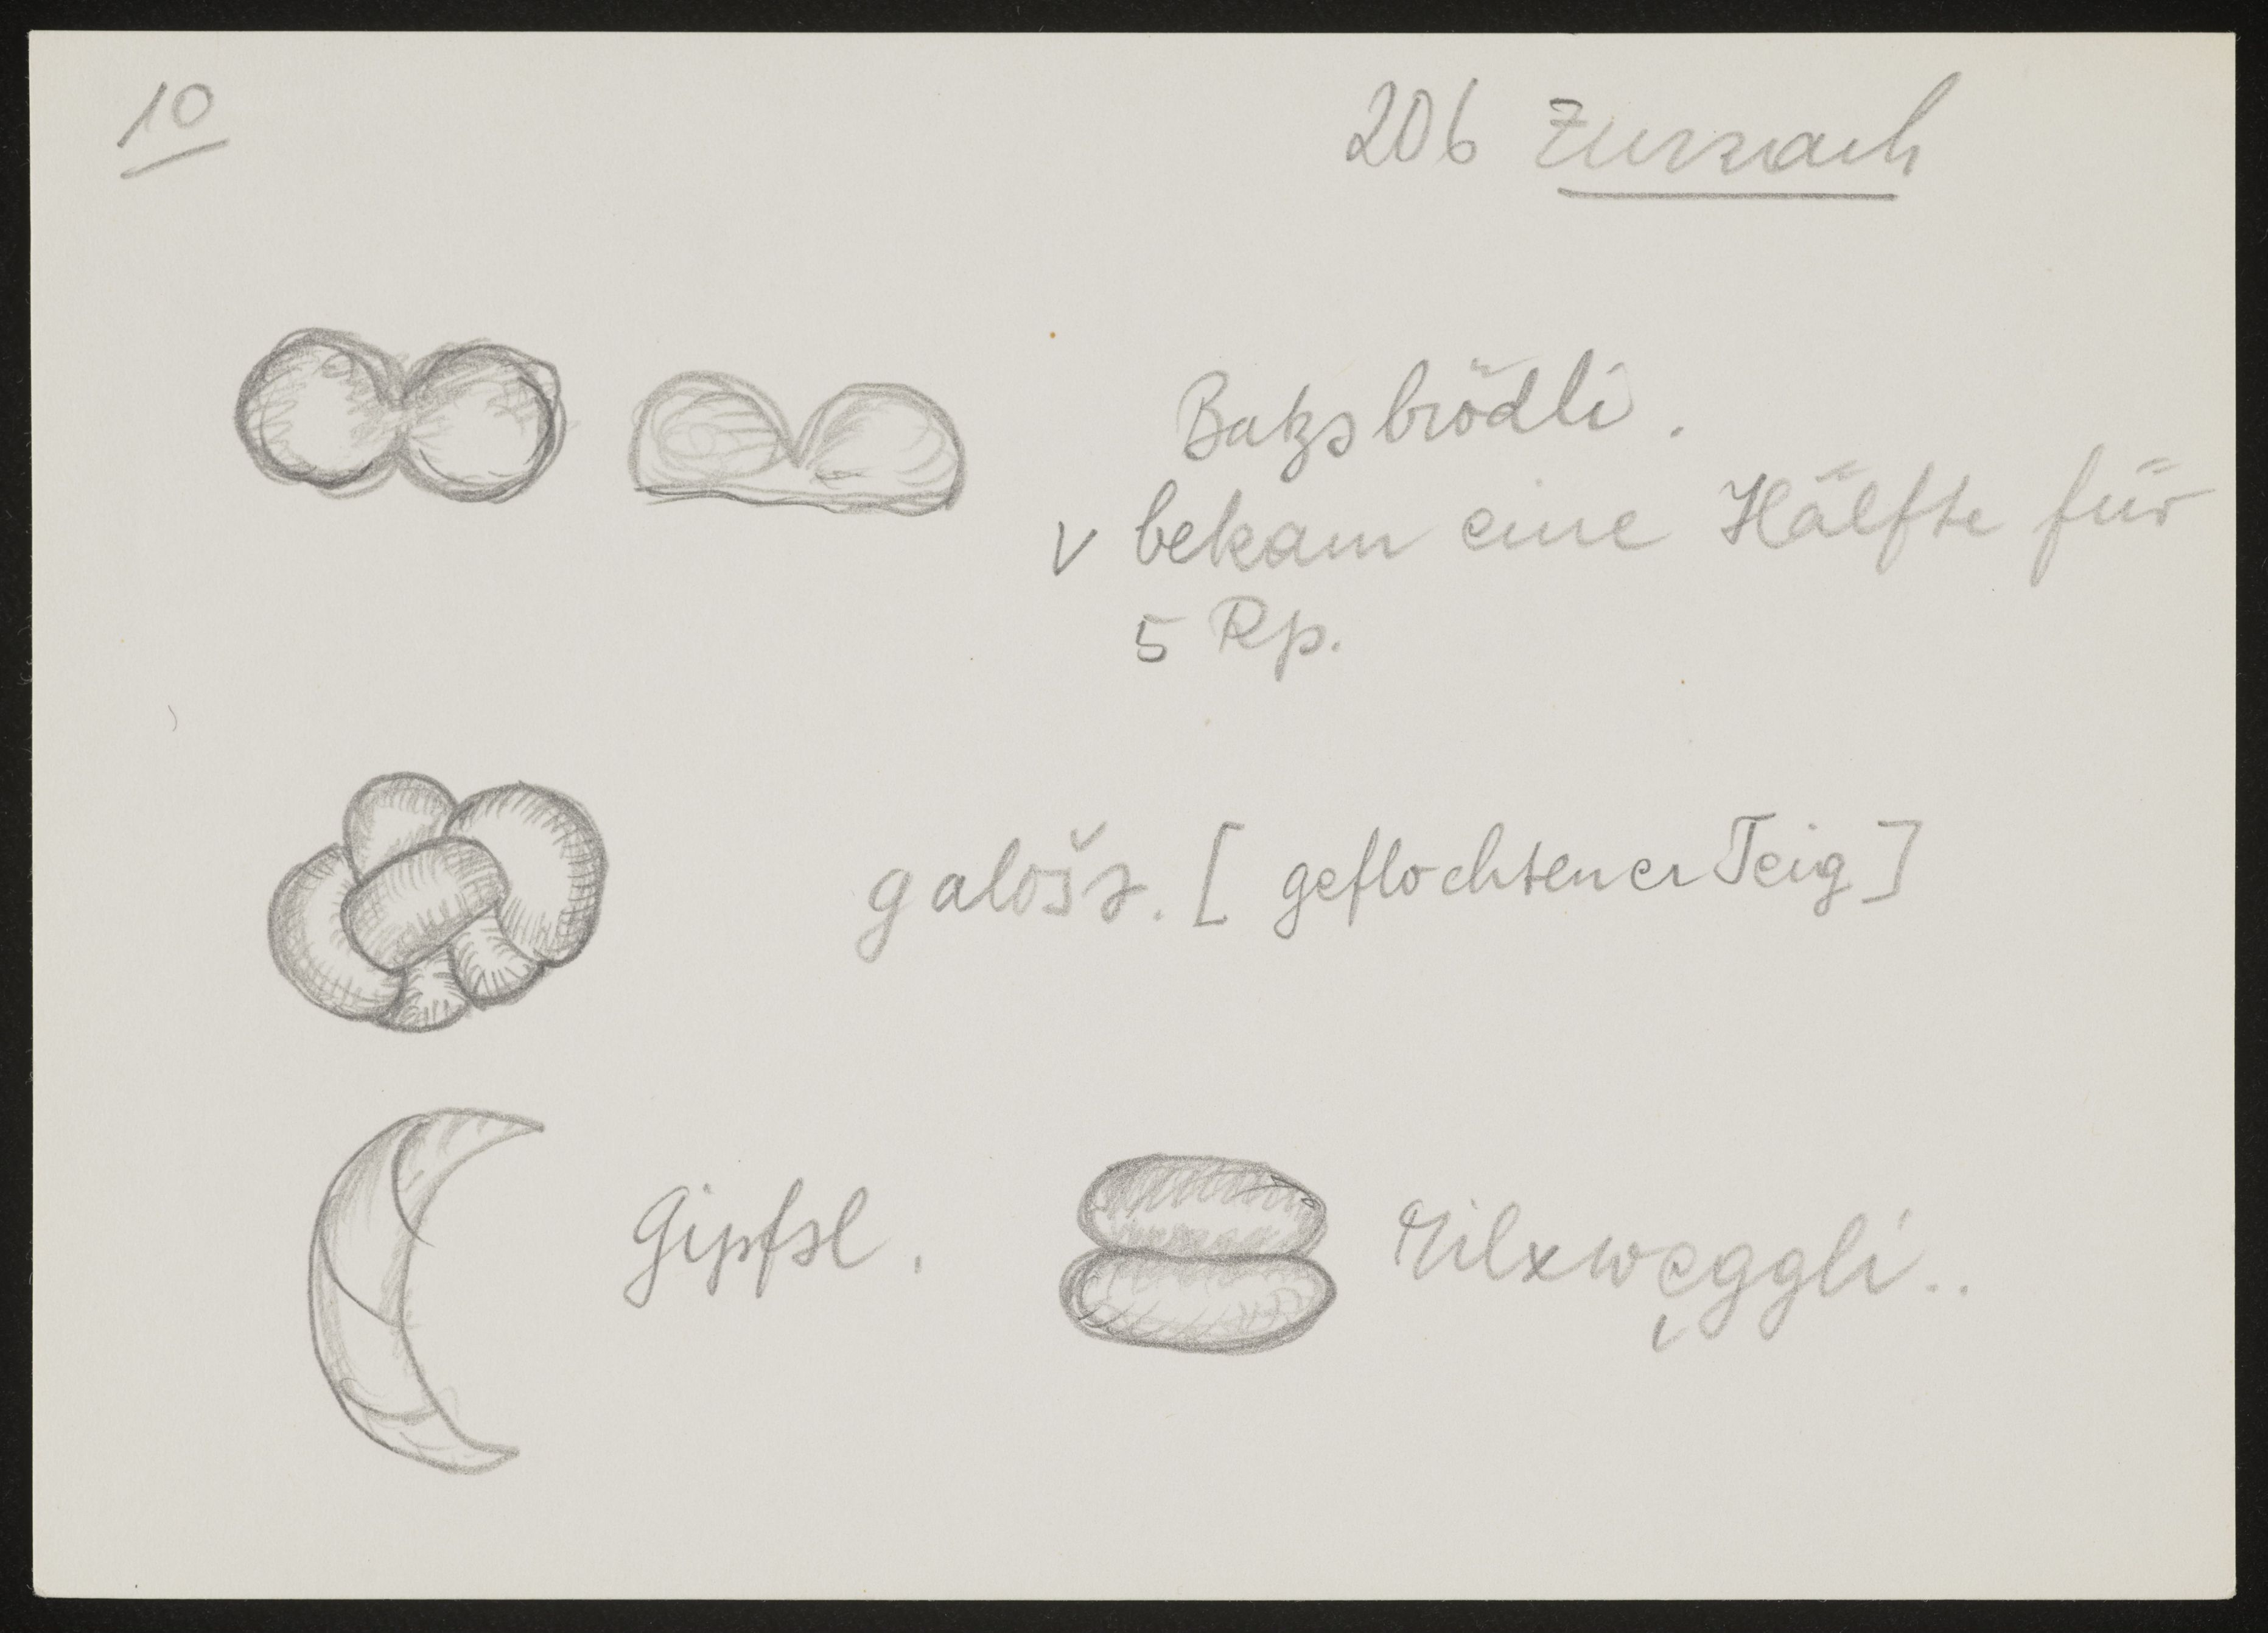 10
206 Zurzach
Batzəbrödli.
v bekam eine Hälfte für
5 Rp.
galošə. [geflochtener Teig]
Gipfəl.
Milxwęggli..